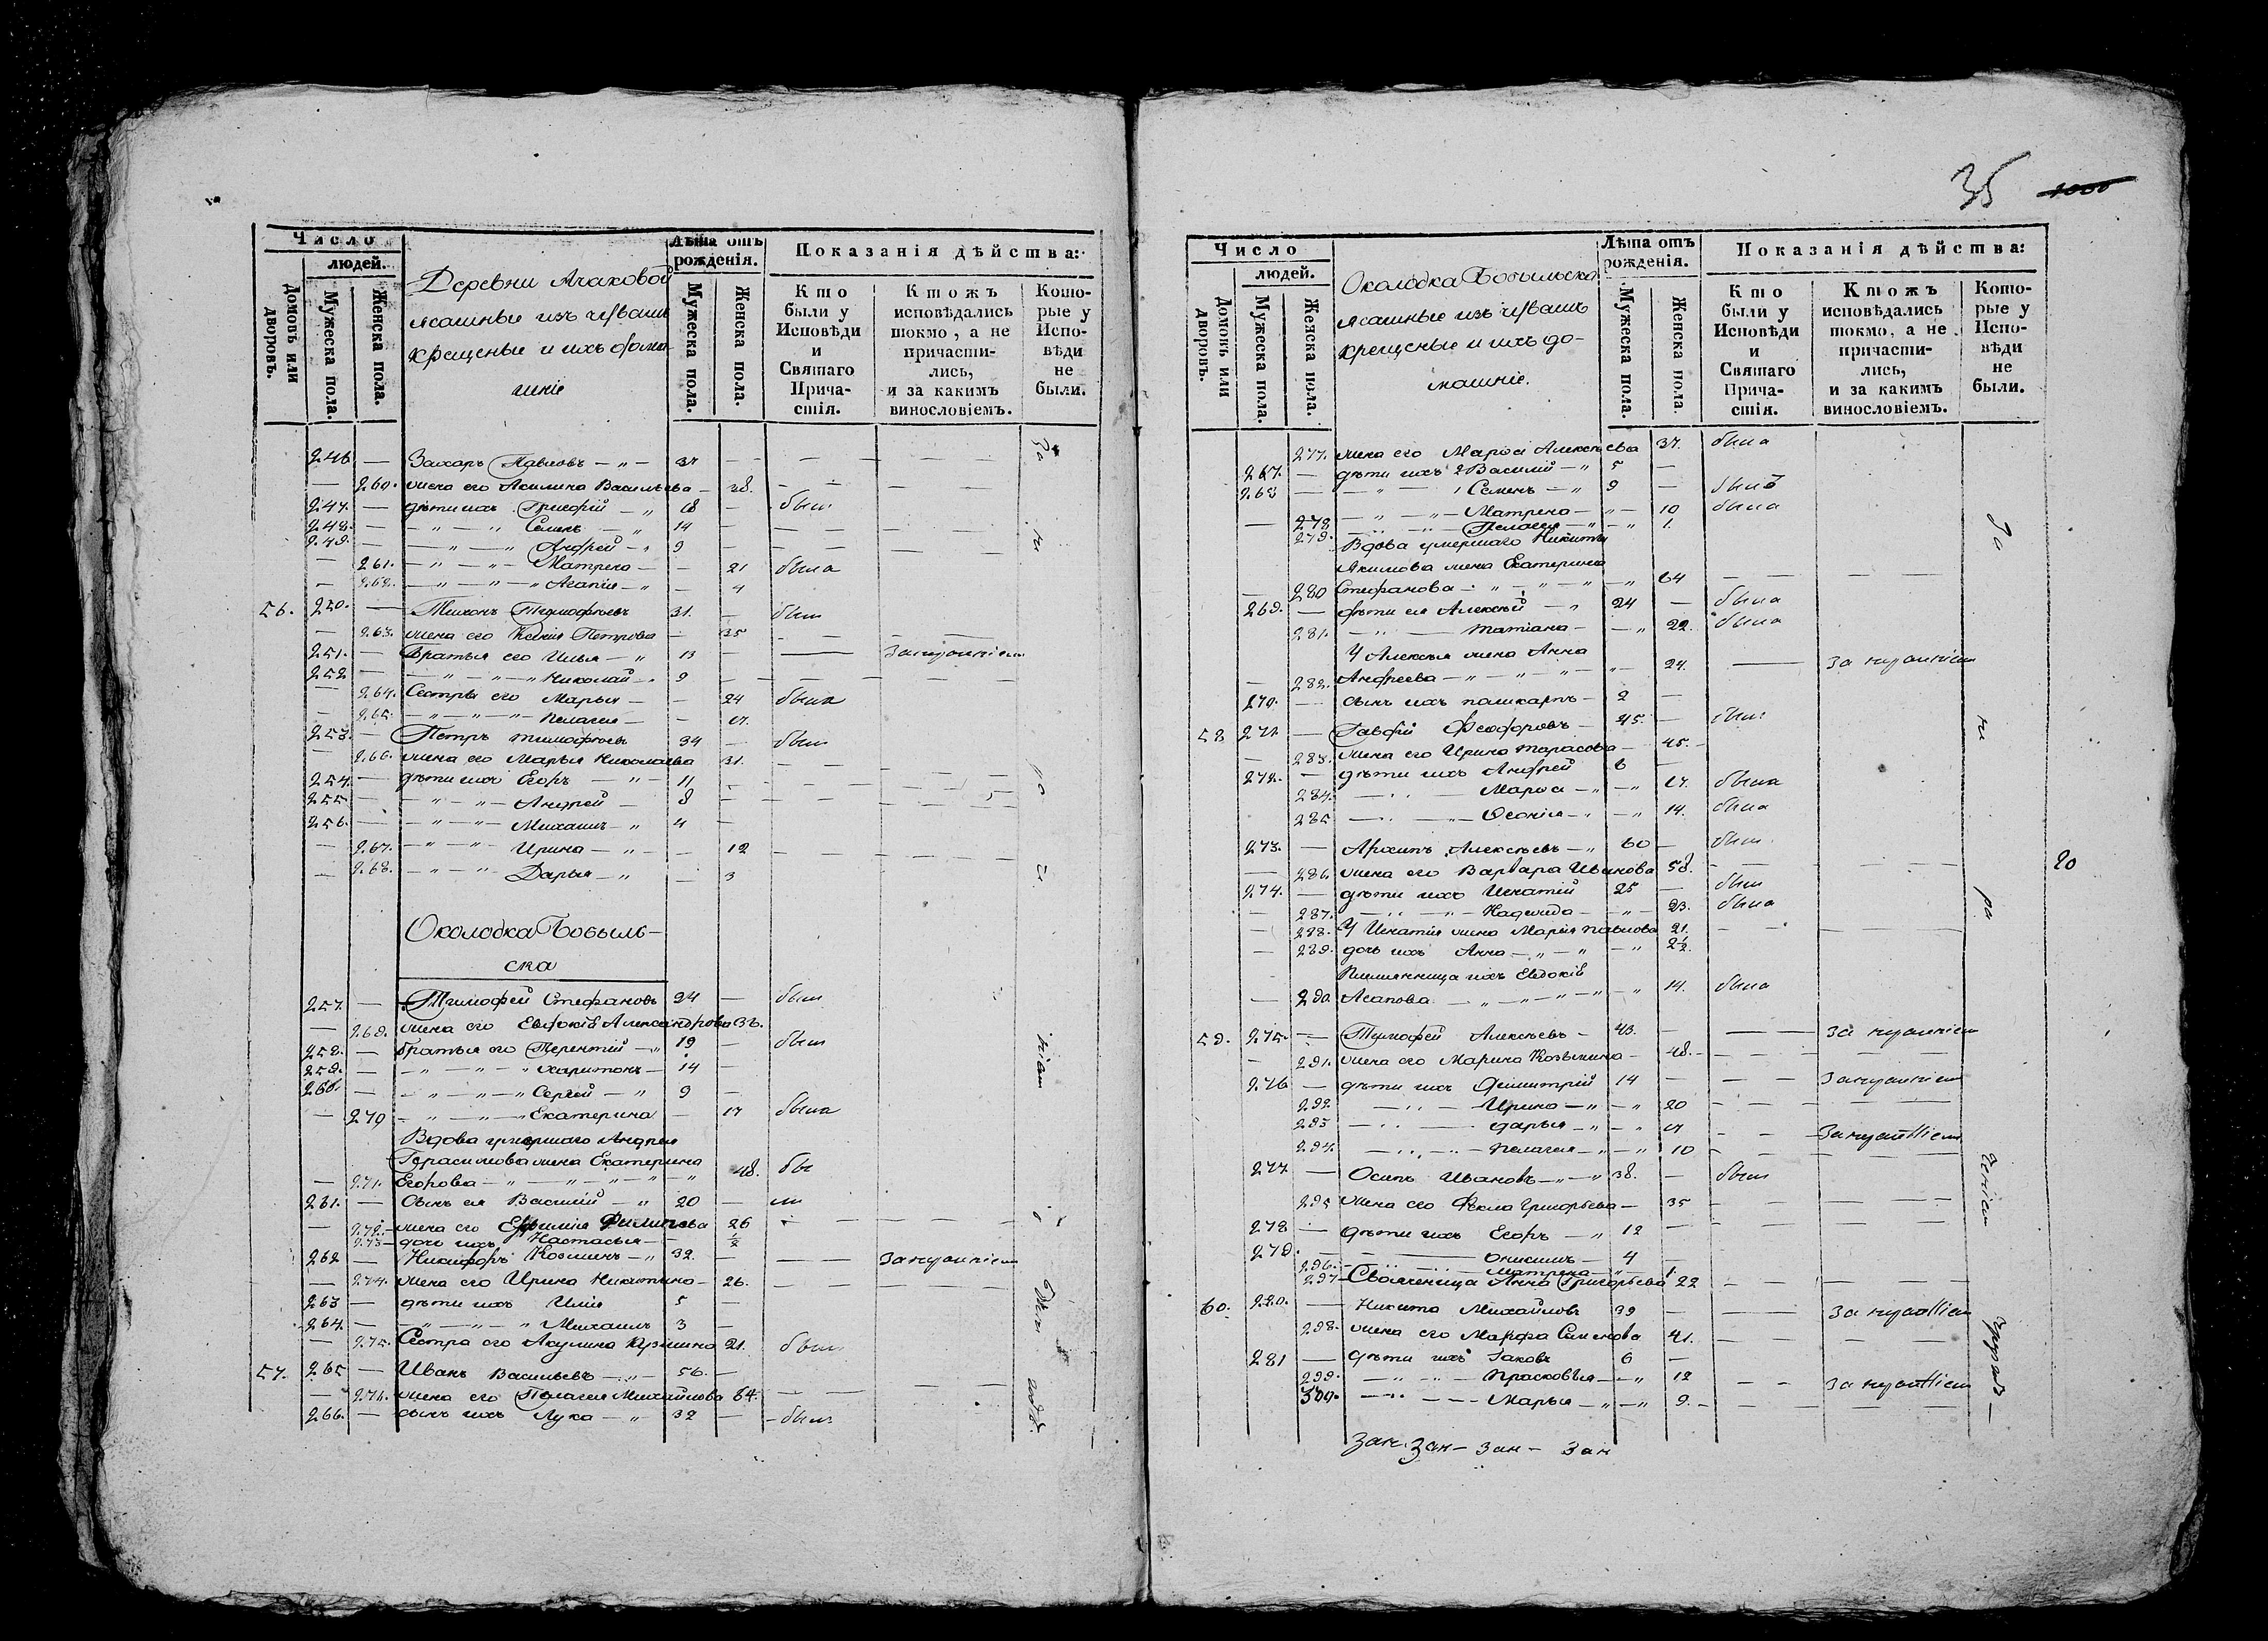 35
Число
людей.
Домовъ или дворовъ.
Мужеска пола.
Женска пола.
Деревни Ачаковой
ясашные изъ чувашъ
крещеные и ихъ дома-
шніе
Лѣта отъ рожденія.
Мужеска пола.
Женска пола.
Показанія дѣйства:
Кто были у Исповѣди и Святаго Прича-стія.
Ктожъ исповѣдались токмо, а не причасти-лись, и за какимъ винословіемъ.
Кото-рые у Испо-вѣди не были.
246 — Захаръ Павловъ — „ — 37 —
— 260. жена его Акилина Васильева — 38.
247. — дѣти ихъ Григорій — „ 18 — былъ
248. — — „ — „ Семенъ — „ 14 —
249. — — „ — „ Андрей — „ 9 —
— 261. — „ — „ — Матрена — — 21 была
— 262. — „ — „ — Агапія — „ — 4
56. 250. — Тихонъ Тимофѣевъ 31. — былъ
— 263. жена его Ксенія Петрова — 35
251. — Братья его Илья — „ 13 — —
252 — — „ — „ — Николай — „ 9 —
— 264. Сестры его Марья — — 24 была
— 265. — „ — „ — Пелагея — — 17.
253. — Петръ Тимофѣевъ 34 — былъ
— 266. жена его Марья Николаева 31.
254. — дѣти ихъ Егоръ — „ — 11
255 — — „ — „ — Андрей — 8
256. — — „ — „ — Михаилъ — „ 4 —
— 267. — „ — „ — Ирина — „ — — 12
— 268. — „ — „ — Дарья — „ — 3
Околодка Бобыль-
ска
257. — Тимофей Стефановъ 24 — былъ
— 269. жена его Евдокія Александрова 36.
258. — братья его Терентій — „ 19 — былъ
259. — — „ — „ — „ Харитонъ — 14 —
260. — — „ — „ — „ Сергей — „ 9 —
— 270 — „ — „ — „ Екатерина — 17 была
Вдова умершаго Андрея
Герасимова жена Екатерина
— 271. Егорова — „ — „ — „ — „ 48. бы
261. — Сынъ ея Василій — „ 20 —
— 272. — жена его Ефимія Филипова 26
273 — дочь ихъ Настасья — ½
262 — Никифоръ Козминъ — „ 32. —
— 274. жена его Ирина Никитина — 26.
263 — дѣти ихъ Илія 5 —
264. — — „ — „ — „ Михаилъ 3 —
— 275. Сестра его Акулина Кузмина 21. была
57. 265 — Иванъ Васильевъ — „ — 56. —
— 276. жена его Пелагея Михайлова 64.
266. — сынъ ихъ Лука — „ 32 — былъ
Число
людей.
Домовъ или дворовъ.
Мужеска пола.
Женска пола.
Околодка Бобыльска
ясашные изъ чувашъ
крещеные и ихъ до-
машніе.
Лѣта отъ рожденія.
Мужеска пола.
Женска пола
Показанія дѣйства:
Кто были у Исповѣди и Святаго Прича-стія.
Ктожъ исповѣдались токмо, а не причасти-лись, и за какимъ винословіемъ.
Кото-рые у Испо-вѣди не были.
277. жена его Марфа Алексѣева 37. была
267. — дѣти ихъ 2 Василій — „ 5 —
268 — — „ — 1 Семенъ — „ 9 —
— 278 — „ — „ — Матрена — „ — 10 была
279. — „ — Пелагея — „ — „ 1.
Вдова умершаго Никиты
Якимова жена Екатерина
— 280 Стефанова — „ — „ — „ — „ 64
269. — дѣти ея Алексѣй — „ 24 —
281. — „ — Татіана — — „ 22. была
У Алексѣя жена Анна
— 282. Андреева — „ — „ — „ „ — 24.
270. — сынъ ихъ 2 —
58 271 — Феодоровъ — 45. — былъ
— 283. жена его Ирина Тарасова — 45. —
272. — дѣти ихъ Андрей 6 —
284. — „ — Марфа — „ — „ 17. была
285 — „ — „ — — „ — „ 14. была
273. — Архипъ Алексѣевъ — „ 60 — былъ
— 286 жена его Варвара Иванова 58.
274. — дѣти ихъ Игнатій 25 — былъ
— 287. — „ — „ — Надежда — — „ — 23. была
— 288. У Игнатія жена Марія Павлова 21.
— 289. дочь ихъ Анна — „ — „ — „ 2½.
Племянница ихъ Евдокія
— 290. Агапова — „ — „ — „ — „ 14. была
20
59. 275. — Тимофей Алексѣевъ — 43. —
— 291. жена его Марина Козьмина — 48. —
276 — дѣти ихъ Димитрій 14 —
292 — „ — Ирина — „ — „ 20
293 — „ — Дарья — „ — „ 17
294. — „ — „ — Пелагея — „ — „ 10
277. — Осипъ Ивановъ — „ — „ 38. — былъ
295 жена его Фекла Григорьева — 35
278 — дѣти ихъ Егоръ — „ 12 —
279. — Онисимъ — 4 —
296. — „ — Матрена — „ — 1.
297 — Свояченица Анна Григорьева 22
60. 280. — Никита Михайловъ 39 —
298. жена его Марфа Семенова 41.
281 — дѣти ихъ Іаковъ 6 —
299. — „ — „ — Прасковья — „ 12
300. — „ — — Марья — „ — „ 9. —
зан. зан — зан — зан